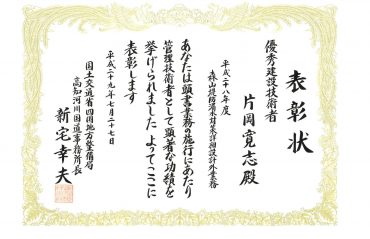 表彰状
優秀建設技術者
片岡寛志殿
平成二十八年度
森山堤防漏水対策詳細設計外業務
あなたは頭書業務の施行にあたり
管理技術者として顕著な功績を
挙げられました よってここに
表彰します
平成二十九年七月二十七日
国土交通省四国地方整備局
高知河川国道事務所長
新宅幸夫